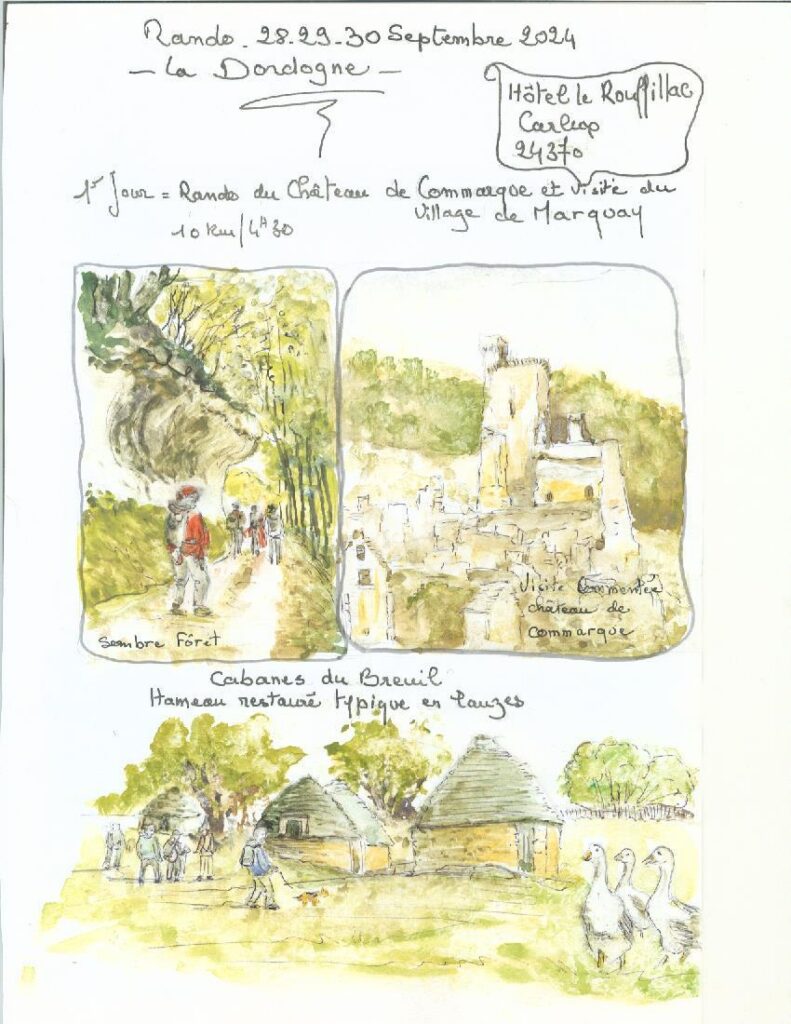 Rando. 28.29.30 Septembre 2024
- la Dordogne -
Hôtel le Rouffillac
Carlup
24370
1er Jour = Rando du Château de Commarque et visite du
village de Marquay
10 km/4H30
Sombre Fôret
Visite Commentée
château de
Commarque
Cabanes du Breuil
Hameau restauré typique en lauzes